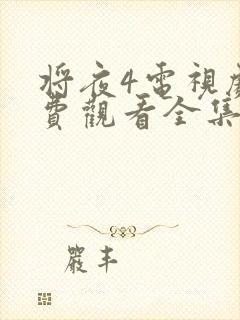 将夜4電視劇
費觀看全集
嚴丰